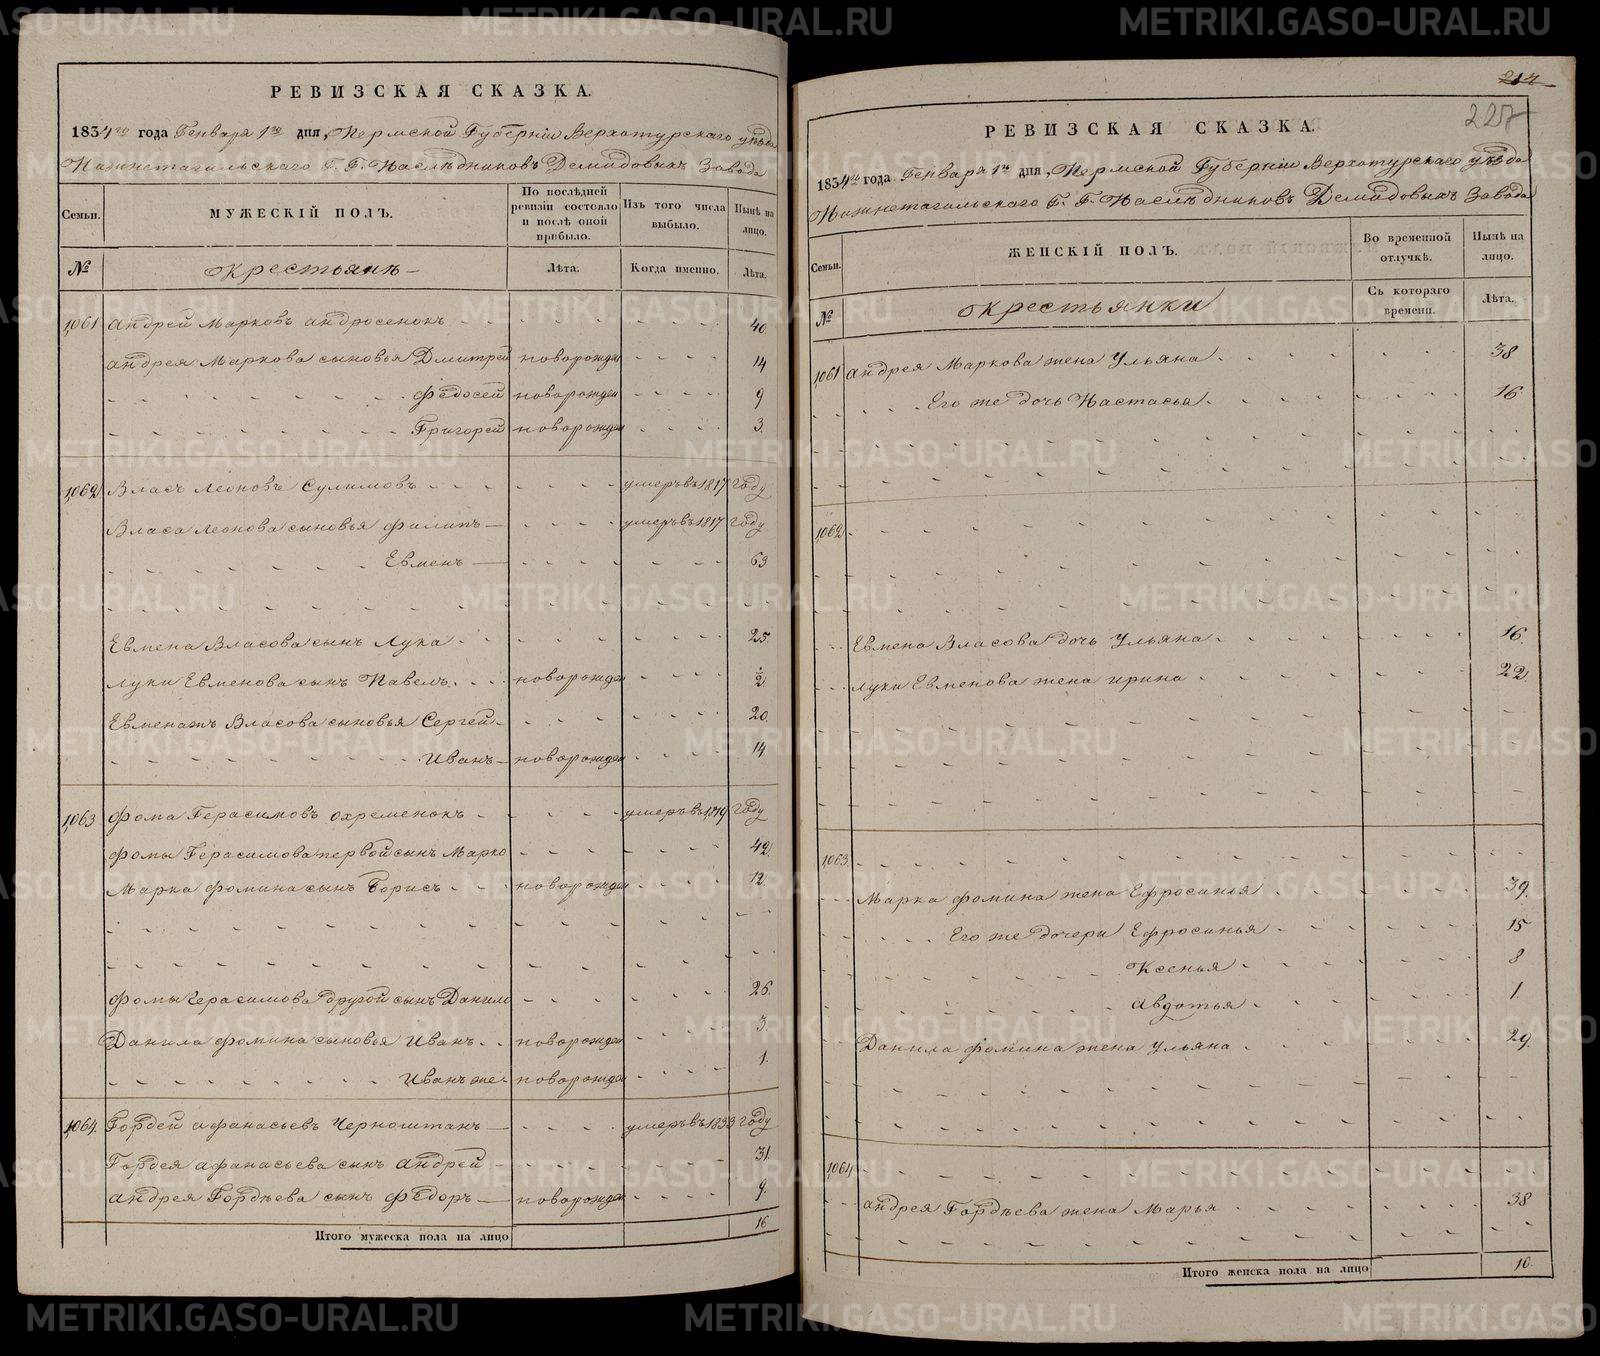 РЕВИЗСКАЯ СКАЗКА.
1834го года Генваря 1го дня, Пермской Губерніи Верхотурскаго уѣзда
Нижнетагильскаго Г. Г. Наслѣдниковъ Демидовыхъ Завода
Семьи. МУЖЕСКІЙ ПОЛЪ. По послѣдней ревизіи состояло и послѣ оной прибыло. Изъ того числа выбыло. Нынѣ на лицо.
№ Крестьянѣ Лѣта. Когда именно. Лѣта.
1,061 Андрей Марковъ Андросенокъ 40
Андрея Маркова сыновья Дмитрей новорожден 14
Федосей новорожден 9
Григорей новорожден 3
1,062 Власъ Леоновъ Сулимовъ умеръ въ 1817 году
Власа Леонова сыновья Филипъ умеръ въ 1817 году
Евменъ 63
Евмена Власова сынъ Лука 25
Луки Евменова сынъ Павелъ новорожден ½
Евменажъ Власова сыновья Сергей 20
Иванъ новорожден 14
1,063 Фома Герасимовъ Охременокъ умеръ въ 1819 году
Фомы Герасимова первой сынъ Марко 42
Марка Фомина сынъ Борисъ новорожден 12
Фомы Герасимова другой сынъ Данило 26
Данила Фомина сыновья Иванъ новорожден 3
Иванъ же новорожден 1
1,064 Гордей Афанасьевъ Черноштанъ умеръ въ 1833 году
Гордея Афанасьева сынъ Андрей 31
Андрея Гордѣева сынъ Федоръ новорожден 9
Итого мужеска пола на лицо 16
227
РЕВИЗСКАЯ СКАЗКА.
1834го года Генваря 1го дня, Пермской Губерніи Верхотурскаго уѣзда
Нижнетагильскаго Г. Г. Наслѣдниковъ Демидовыхъ Завода
Семьи. ЖЕНСКІЙ ПОЛЪ. Во временной отлучкѣ. Нынѣ на лицо.
№ Крестьянки Съ котораго времени. Лѣта.
1,061 Андрея Маркова жена Ульяна 38
Его же дочь Настасья 16
1,062
Евмена Власова дочь Ульяна 16
Луки Евменова жена Ирина 22
1,063
Марка Фомина жена Ефросинья 39
Его же дочери Ефросинья 15
Ксенья 8
Авдотья 1
Данила Фомина жена Ульяна 29
1,064
Андрея Гордѣева жена Марья 38
Итого женска пола на лицо 10
METRIKI.GASO-URAL.RU